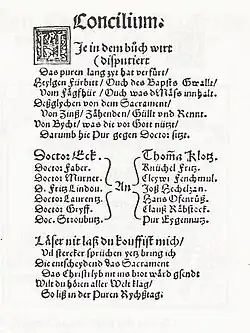 Concilium.
Hie in dem bůch wirt
disputiert
Das puren lang zyt hat verfürt/
Heylgen Fürbitt/ Ouch des Bapsts Gwallt/
Vom Fägfhür/ Ouch was d Mäss innhalt.
Deßglychen von dem Sacrament/
Von Zinß/ Zähenden/ Güllt vnd Rennt.
Von Bycht/ was die vor Gott nützt/
Darumb hie Pur gegen Doctor sitzt.
Doctor Eck.
Doctor Faber.
Doctor Murner.
D. Fritz Lindou.
Doctor Laurentz.
Doctor Gryff.
Doc. Stroubutz.
An
Thoma Klotz.
Knüchel Fritz.
Cleywi Fenchmul.
Joß Hechelzan.
Hans Ofenrůß.
Clauß Räbstock.
Pur Eygennutz.
Läser nit laß du kouffist mich/
Vil stercker sprüchen yetz bring ich
Die entscheydend das Sacrament
Das Christi lyb nit ins brot wärd gsendt
Wilt du hören aller Welt klag/
So liß in der Puren Rychßtag: